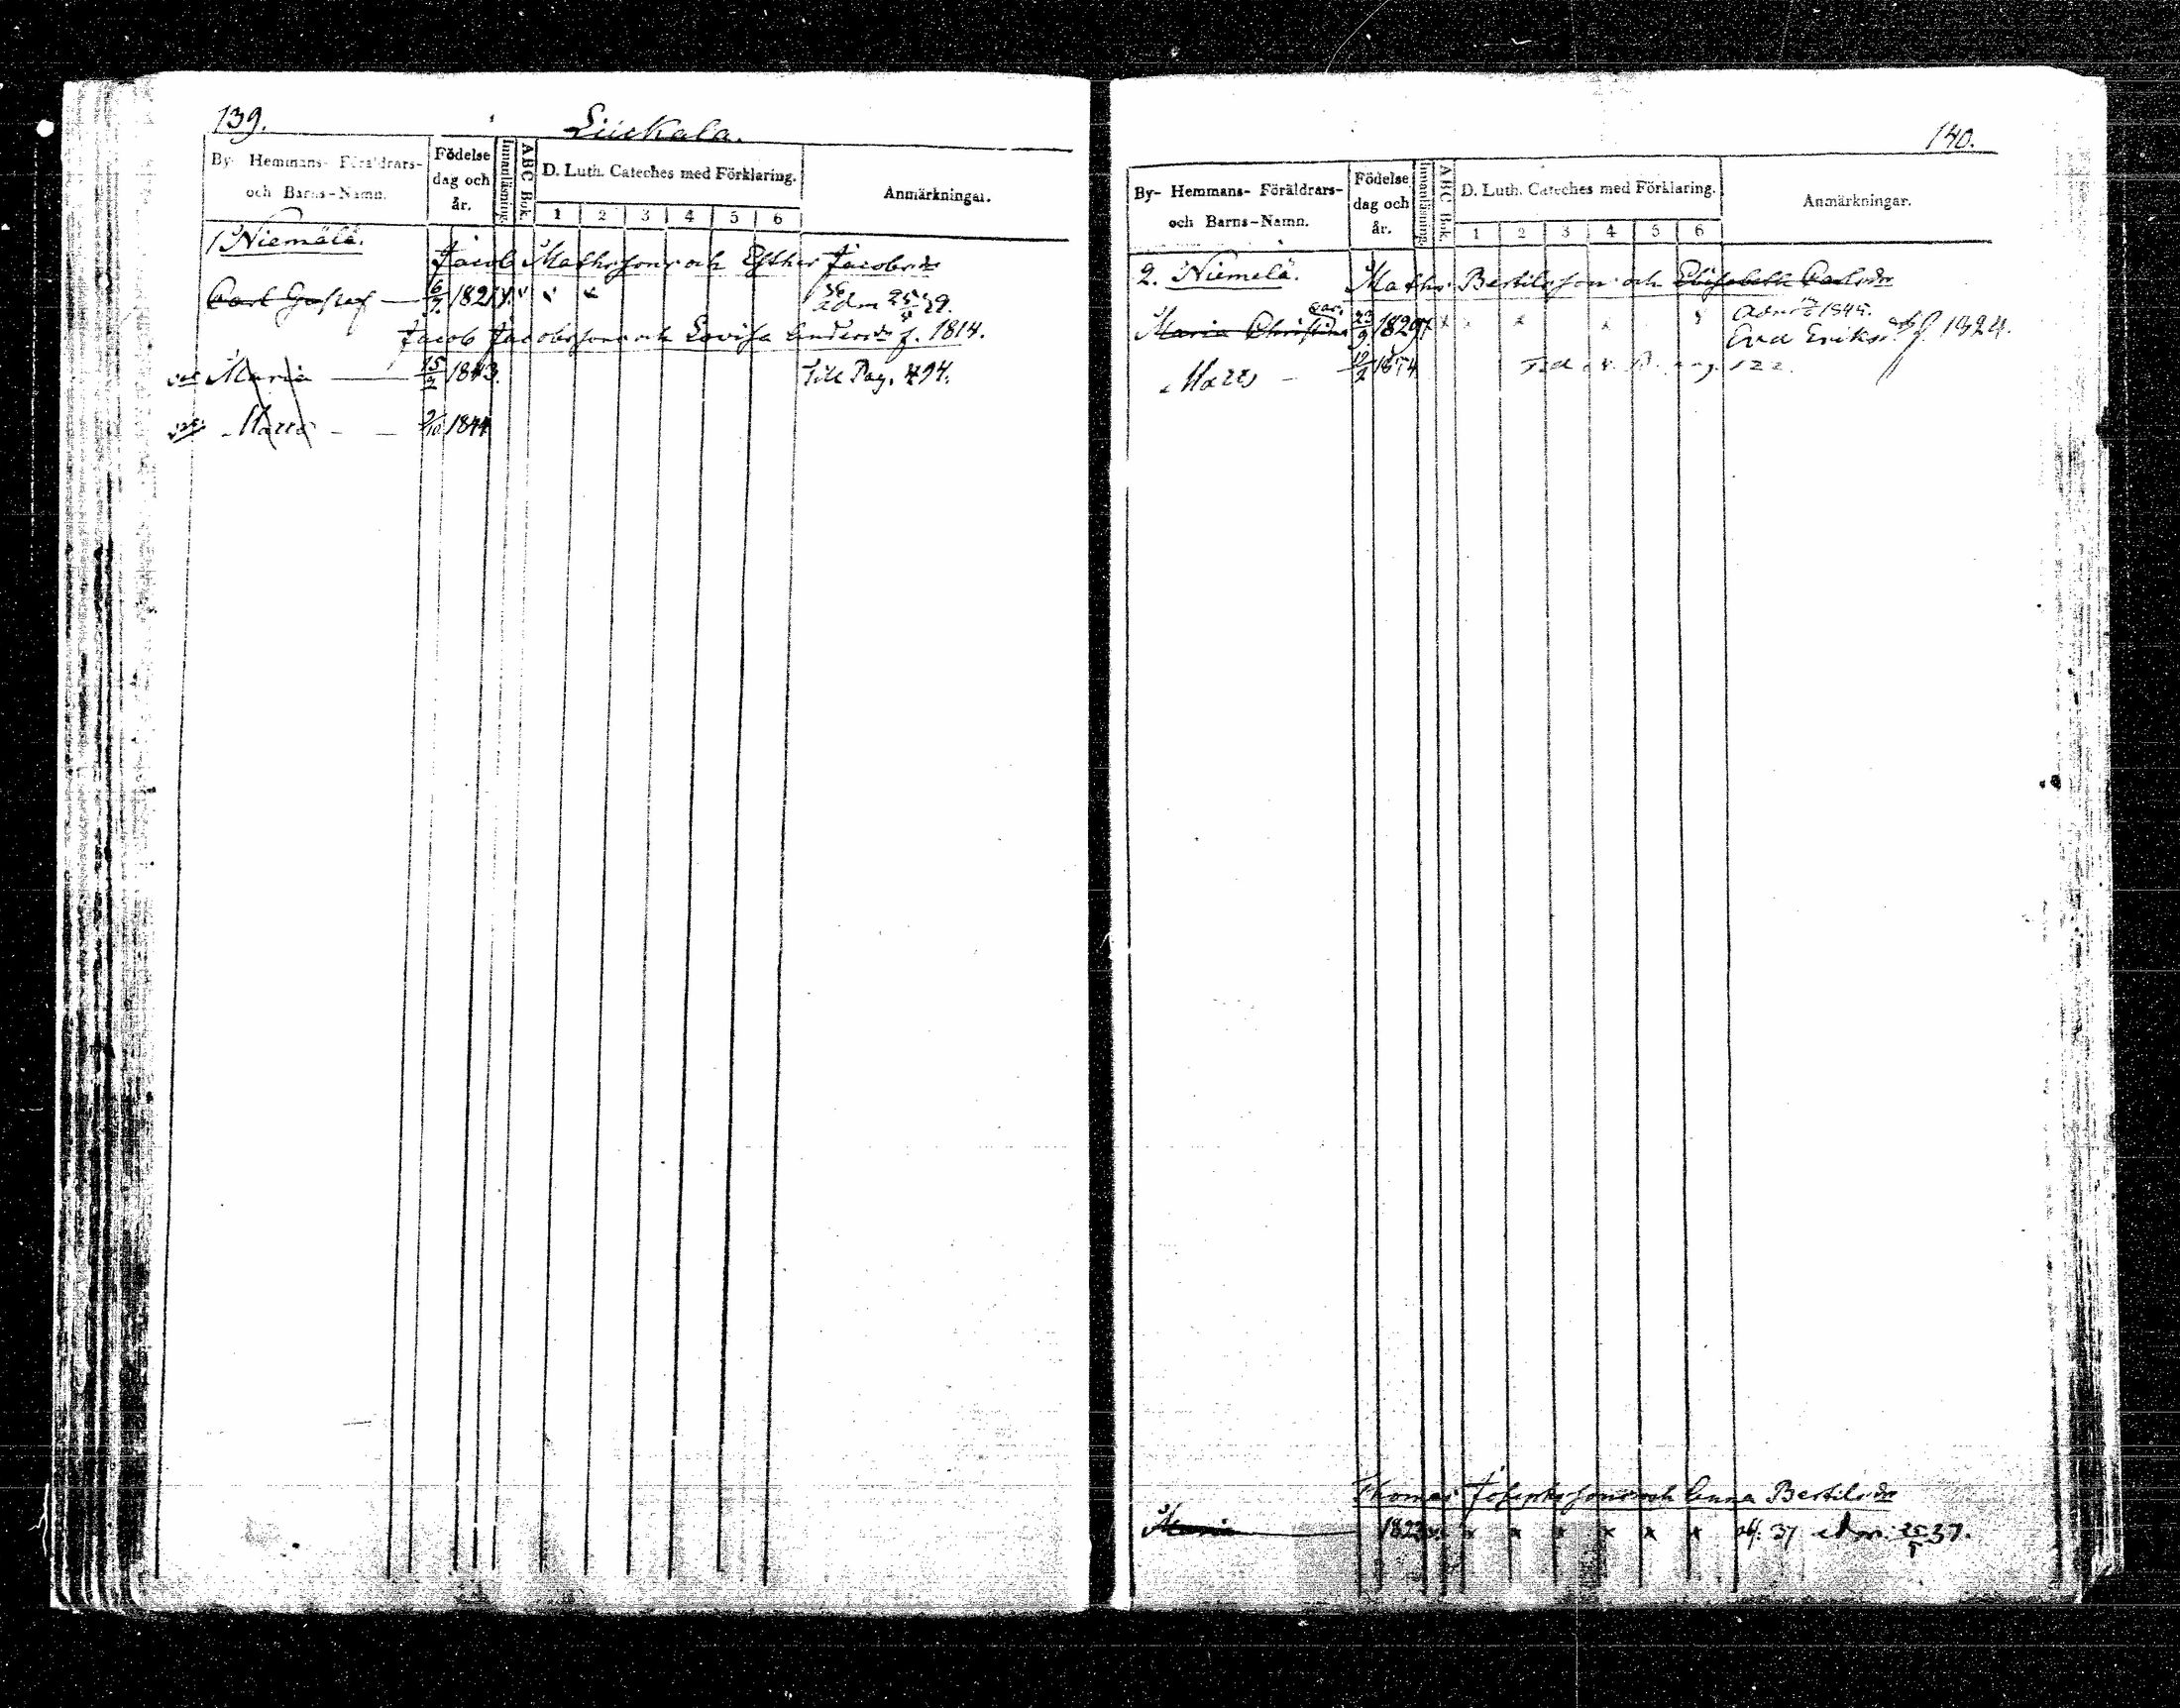 139.
Luckala.
By- Hemmans- Föräldrars- och Barns-Namn.
Födelse dag och år.
Innanläsning.
ABC Bok.
D. Luth. Cateches med Förklaring.
1 2 3 4 5 6
Anmärkningar.
1 Niemälä.
Jacob Mathsson och Esther Jacobsdr
Carl Gustaf — 6/7 1821
adm 25/5 39.
Jacob Jacobsson och Lovisa Andersdr f. 1814.
Maria — 15/2 1843.
Till Pag. 494.
Matts — 9/10 1844
140.
By- Hemmans- Föräldrars- och Barns-Namn.
Födelse dag och år.
Innanläsning.
ABC Bok.
D. Luth. Cateches med Förklaring.
1 2 3 4 5 6
Anmärkningar.
2. Niemelä.
Maths Bertilsson och Elisabeth Carlsdr
Maria Christina 23/9 1829 x x x x
Adm 1845.
Eva Eriksdr f. 1824.
Matts — 19/2 1854
122
Thomas Josephsson och Anna Bertilsdr
Maria — 1823 x x x x x x 37 adm. 37.